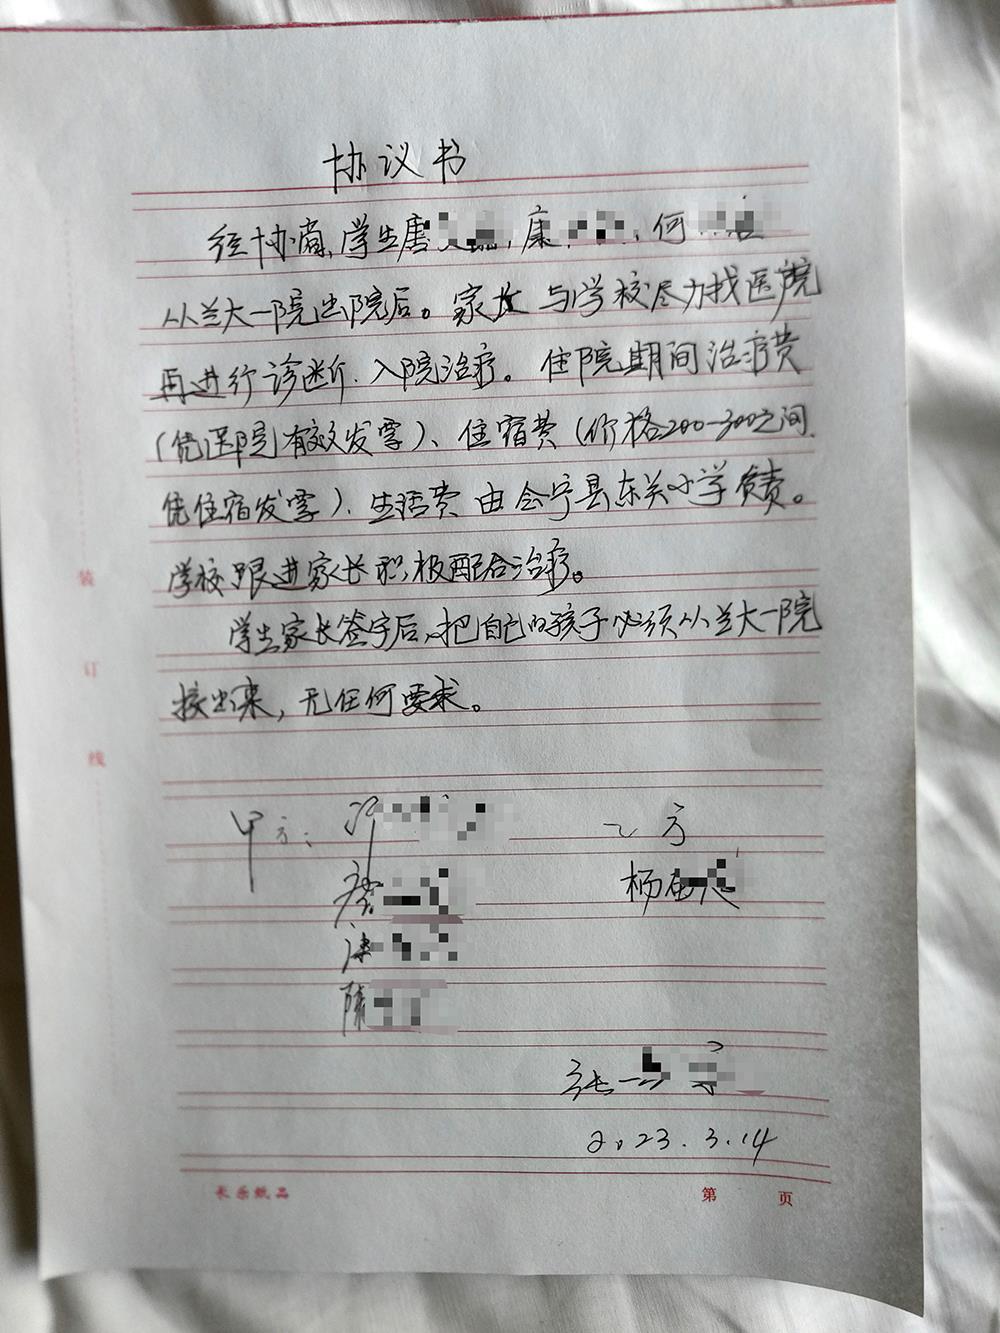 协议书
经协商,学生唐 , 康 , 何
从兰大一院出院后。家长与学校尽力找医院
再进行诊断、入院治疗。住院期间治疗费
(凭医院有效发票)、住宿费(价格200-300之间
凭住宿发票)、生活费由会宁县东关小学负责。
学校跟进家长积极配合治疗。
学生家长签字后,把自己的孩子必须从兰大一院
接出来,无任何要求。
装
订
线
甲方: 乙方
杨
陈
张
2023.3.14
长乐纸品 第 页